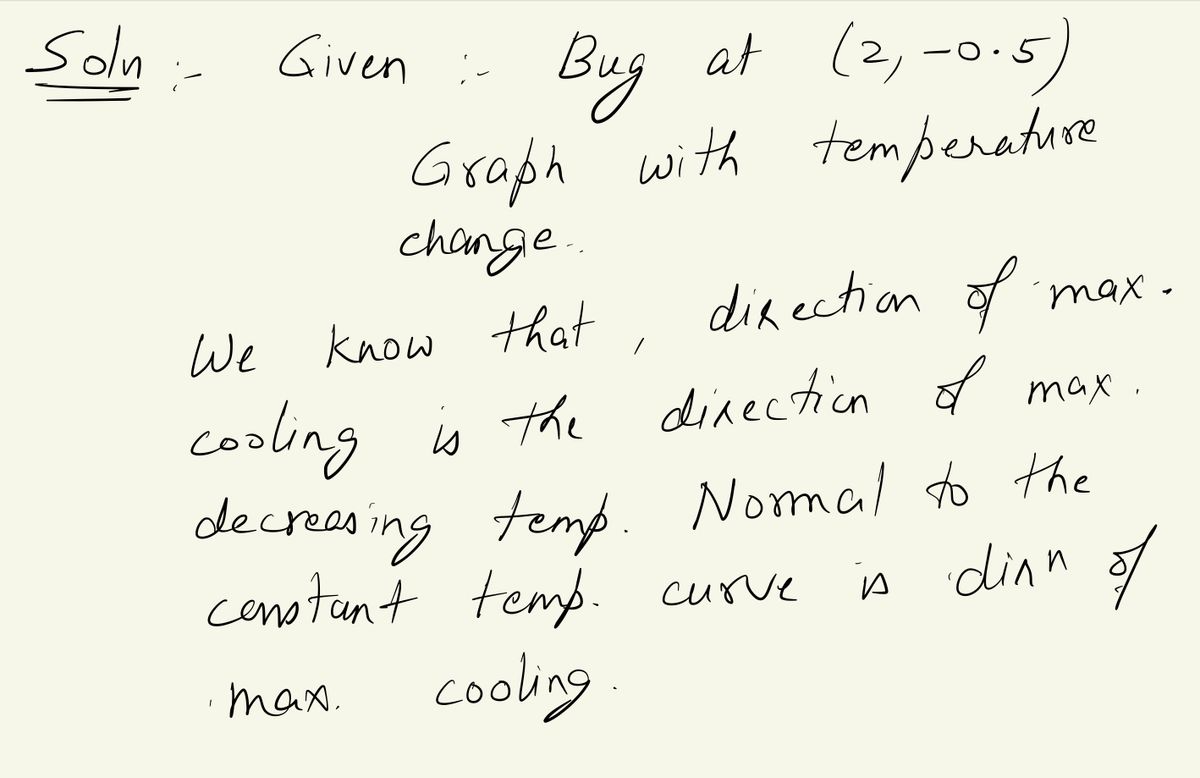 Soln :- Given :- Bug at (2, -0.5)
Graph with temperature
change..
We know that, direction of max.
cooling is the direction of max.
decreasing temp. Normal to the
constant temp. curve is dirn of
max. cooling.